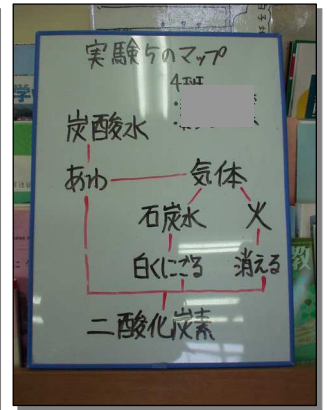 実験5のマップ
4班
炭酸水
あわ 気体
石炭水 火
白くにごる 消える
二酸化炭素